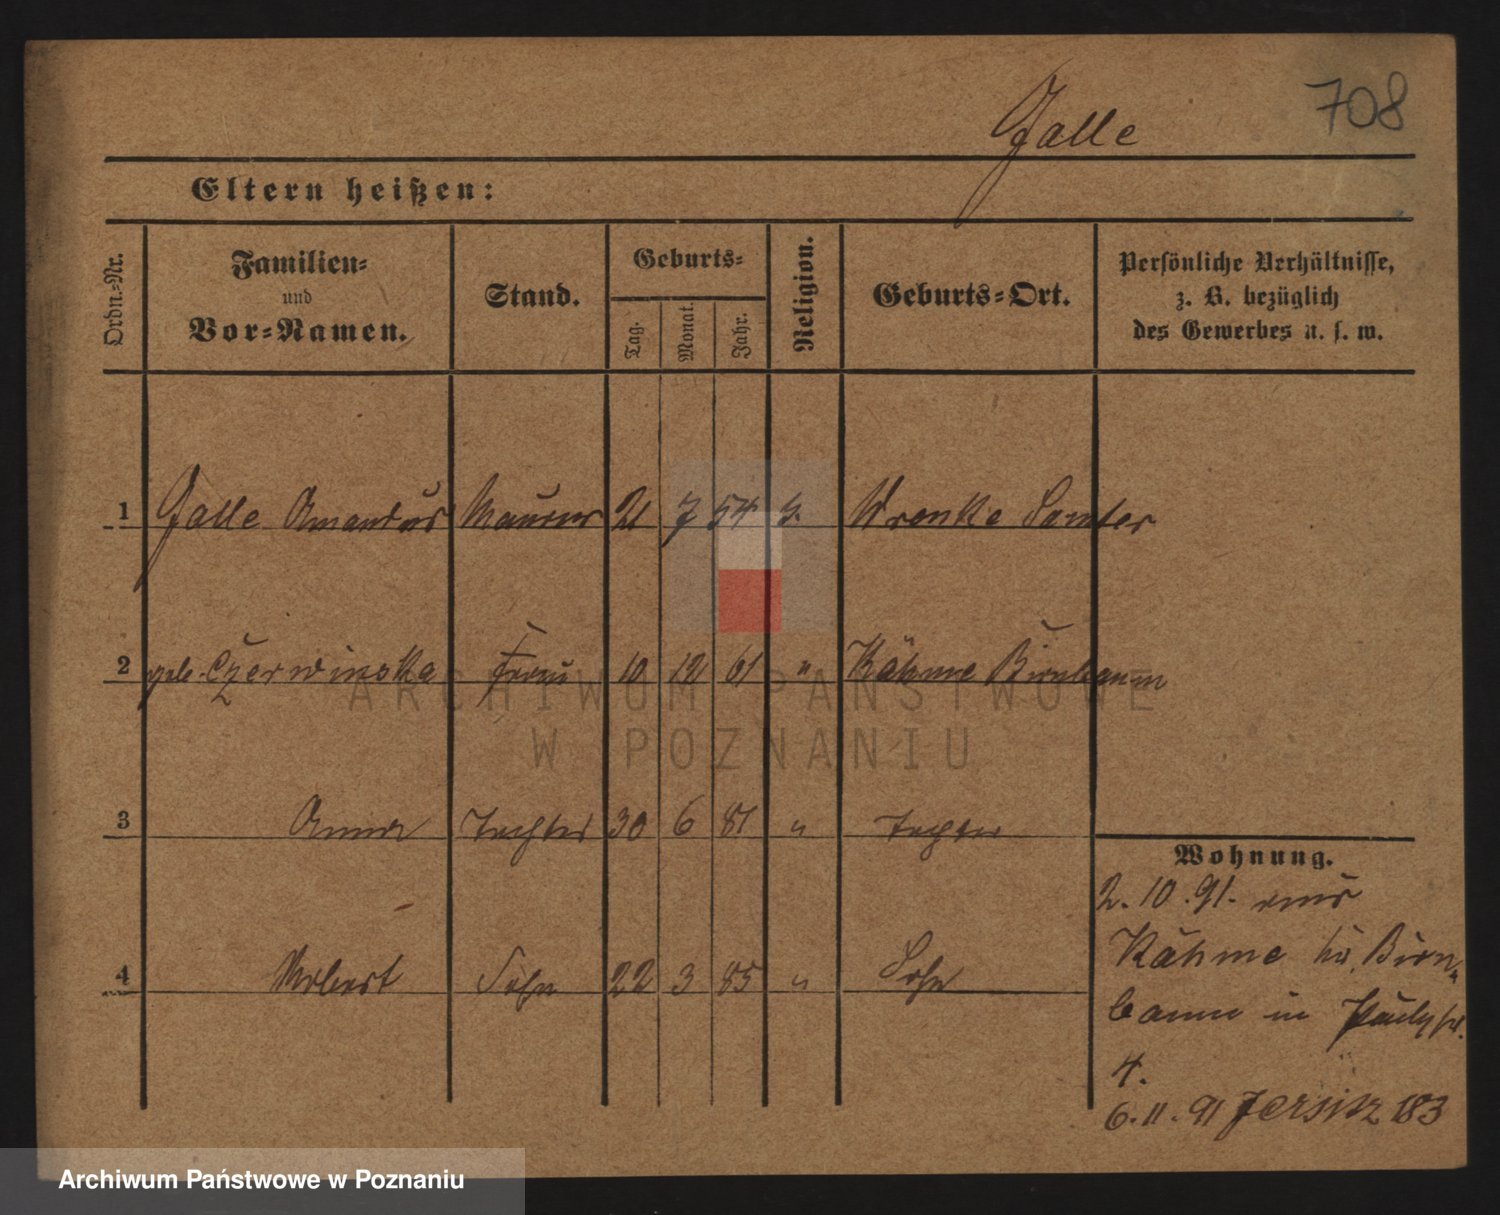 708
Jalle
Eltern heißen:
Ordn.-Nr.
Familien-
und
Vor-Namen.
Stand.
Geburts-
Tag.
Monat.
Jahr.
Religion.
Geburts-Ort.
Persönliche Verhältnisse,
z. B. bezüglich
des Gewerbes u. s. w.
1 Jalle Amandus Maurer 21 7 54 Wronke Samter
2 geb. Czerwinska Frau 10 12 61 " Kähme Birnbaum
3 Anna Tochter 30 6 81 " Tochter
4 Sohn 22 3 85 " Sohn
Wohnung.
2.10.91. aus
Kähme Birn-
baum in
4.
6.11.91 Jersitz 183
ARCHIWUM PAŃSTWOWE
W POZNANIU
Archiwum Państwowe w Poznaniu